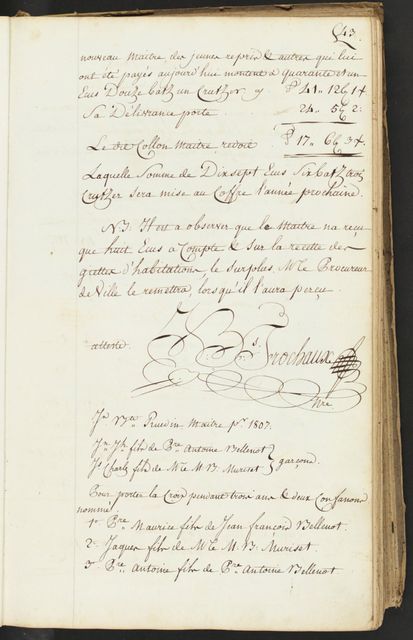 43.
nouveau Maitre, des jeunes repris & autres que lui
ont été payés aujourd'hui montent à quarante et un
Ecus Douze batz un Crutzer y 41.. 12 G 1 +
Sa Délivrance porte 24.. 5 G 2:
Le dit Collon Maitre redoit 17.. 6 G 3 +.
Laquelle Somme de Dix sept Ecus Six batz trois
Crutzer sera mise au Coffre l'année prochaine.
NB. Il est a observer que le Maitre na reçu
que huit Ecus a Compte & sur la recette des
grettes d'habitations, le surplus, Mr le Procureur
de Ville le remettra, lorsqu'il l'aura perçu
atteste. Frochaux
Jn Ruedin Maitre pr 1807.
Jn Jh fils de Pre Antoine Bellenot
Js Charles fils de Mr le M. B. Muriset } garçons.
Pour porter la Croix pendant trois ans & deux Confanons
nommé
1o Pre Maurice fils de Jean françois Bellenot.
2o Jaques fils de Mr le M. B. Muriset
3o Pre Antoine fils de Pre Antoine Bellenot